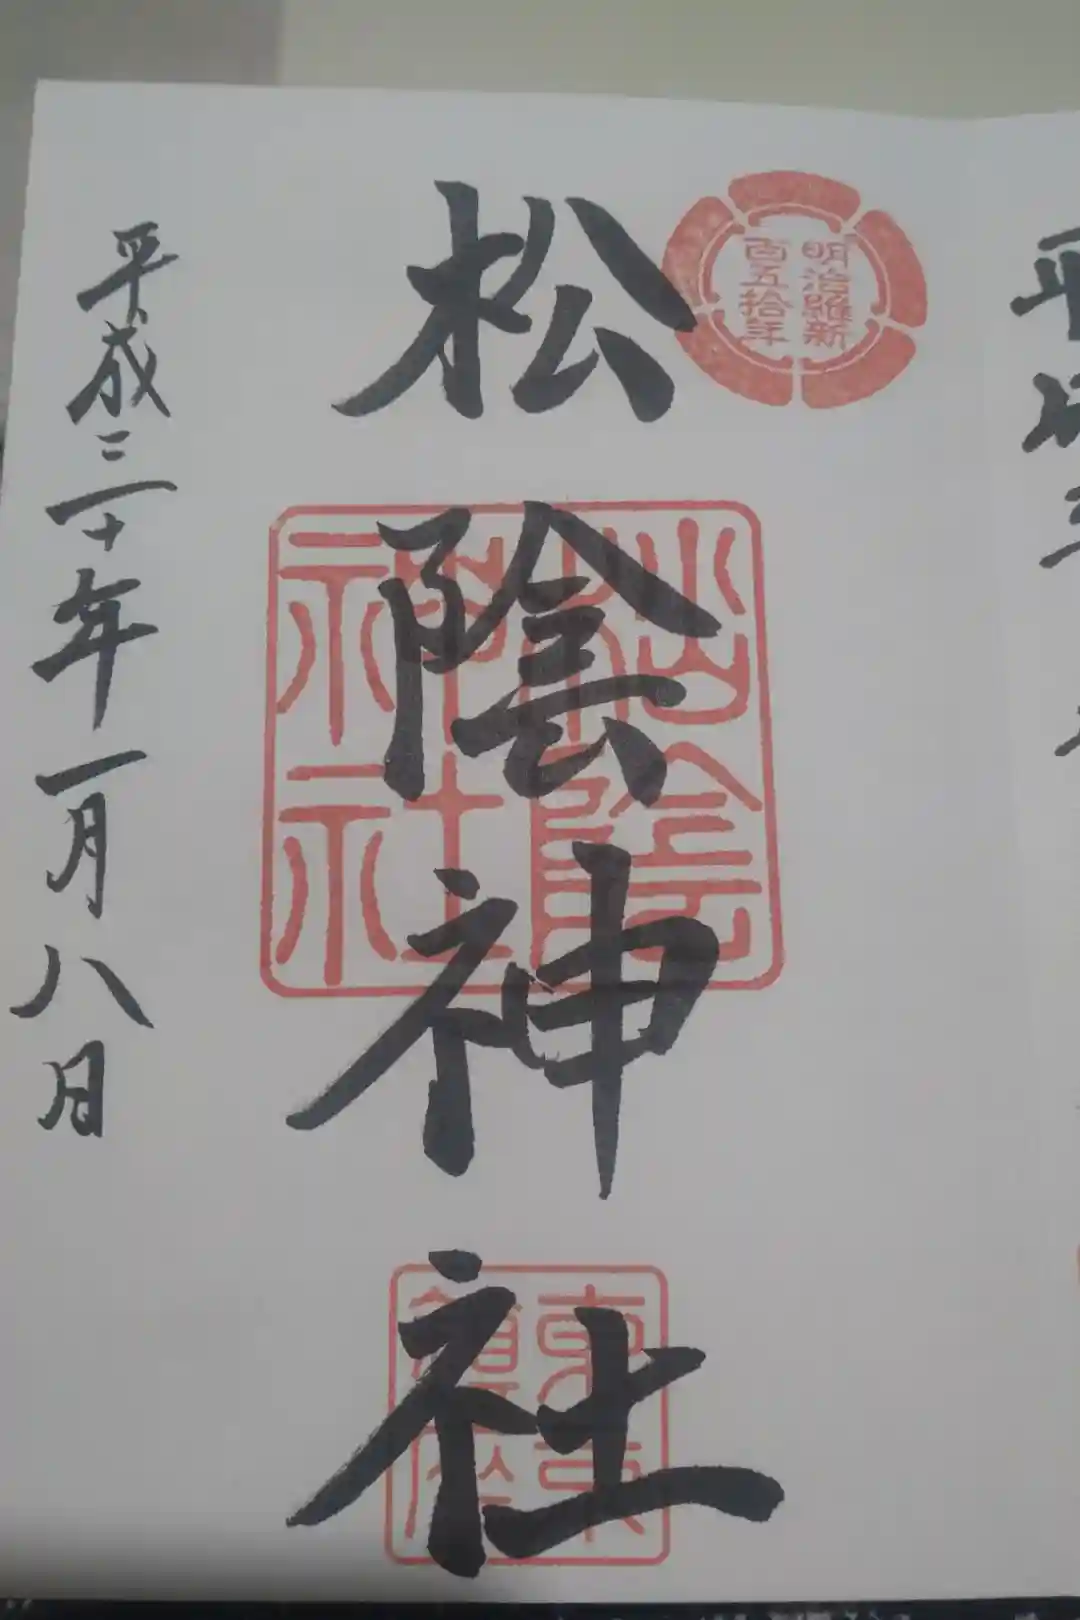 明治維新
百五拾年
松陰神社
松陰
神社
東京
鎮座
平成三十年一月八日